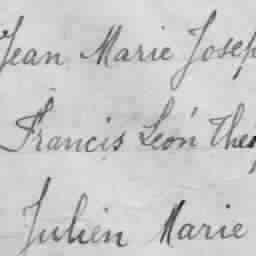 Jean Marie Josep
Francis León Theo
Julien Marie